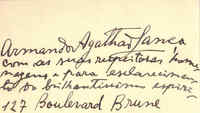 Armando Agathas Lança
com as suas respeitosas homenagens e para esclarecimento
do brilhantissimo espiri-
127 Boulevard Brune